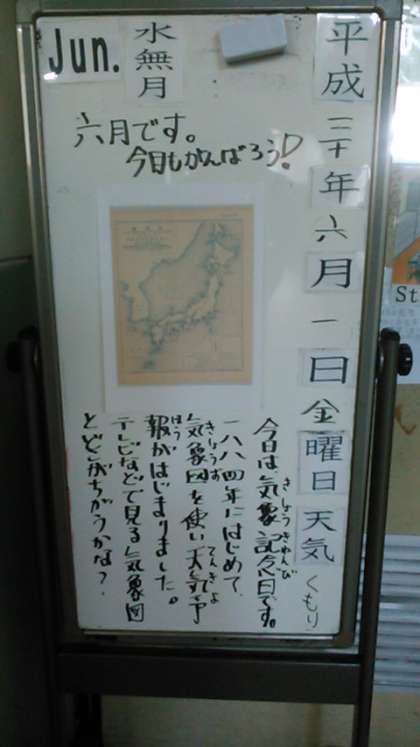 平成三十年六月一日金曜日天気くもり
水無月
Jun.
六月です。
今日もがんばろう！
きしょうきねんび
今日は気象記念日です。
一八八四年にはじめて
きしょうず てんきよ
気象図を使い天気予
ほう
報がはじまりました。
テレビなどで見る気象図
とどこがちがうかな？
St